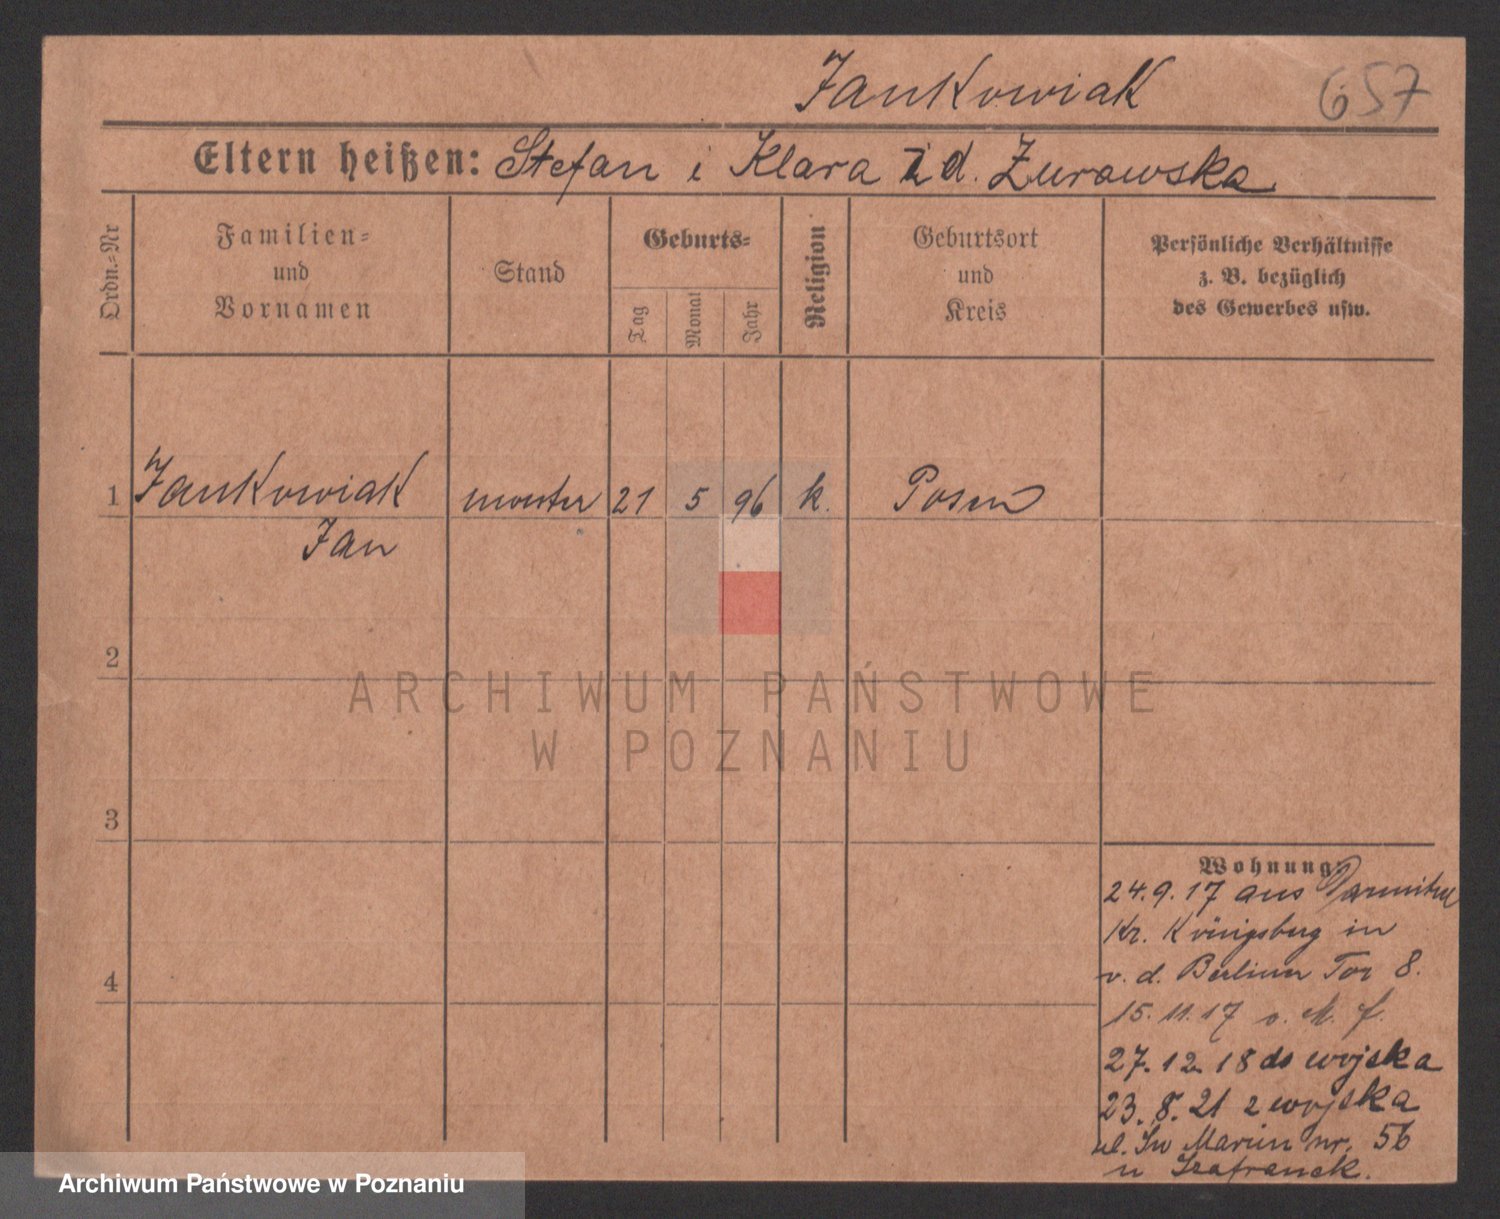 Jankowiak 657
Eltern heißen: Stefan i Klara zd. Żurawska
Ordn.=Nr
Familien=
und
Vornamen
Stand
Geburts=
Tag
Monat
Jahr
Religion
Geburtsort
und
Kreis
Persönliche Verhältnisse
z. B. bezüglich
des Gewerbes usw.
1 Jankowiak monter 21 5 96 k. Posen
Jan
2
ARCHIWUM PAŃSTWOWE
W POZNANIU
3
4
Wohnung
24.9.17 aus
Kr. Königsberg in
v. d. Berliner Tor 8.
15.11.17 v. M. f.
27.12.18 do wojska
23.8.21 z wojska
ul. Św Marcin nr. 56
u Szafranek.
Archiwum Państwowe w Poznaniu